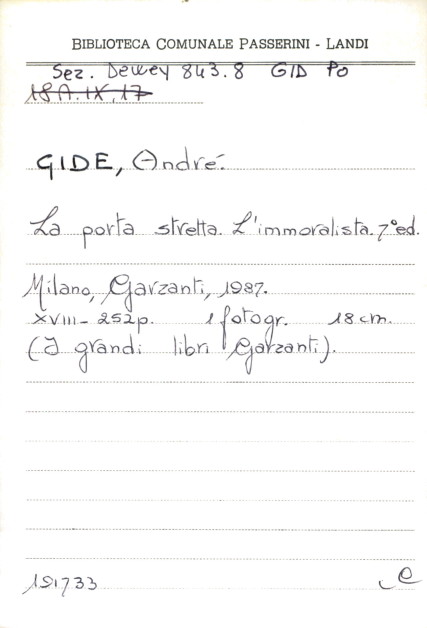 BIBLIOTECA COMUNALE PASSERINI - LANDI
Sez. Dewey 843.8 GID Po
18A.IX,17
GIDE, André.
La porta stretta. L'immoralista. 7°ed.
Milano, Garzanti, 1987.
XVIII-252p. 1 fotogr. 18cm.
(I grandi libri Garzanti).
191733